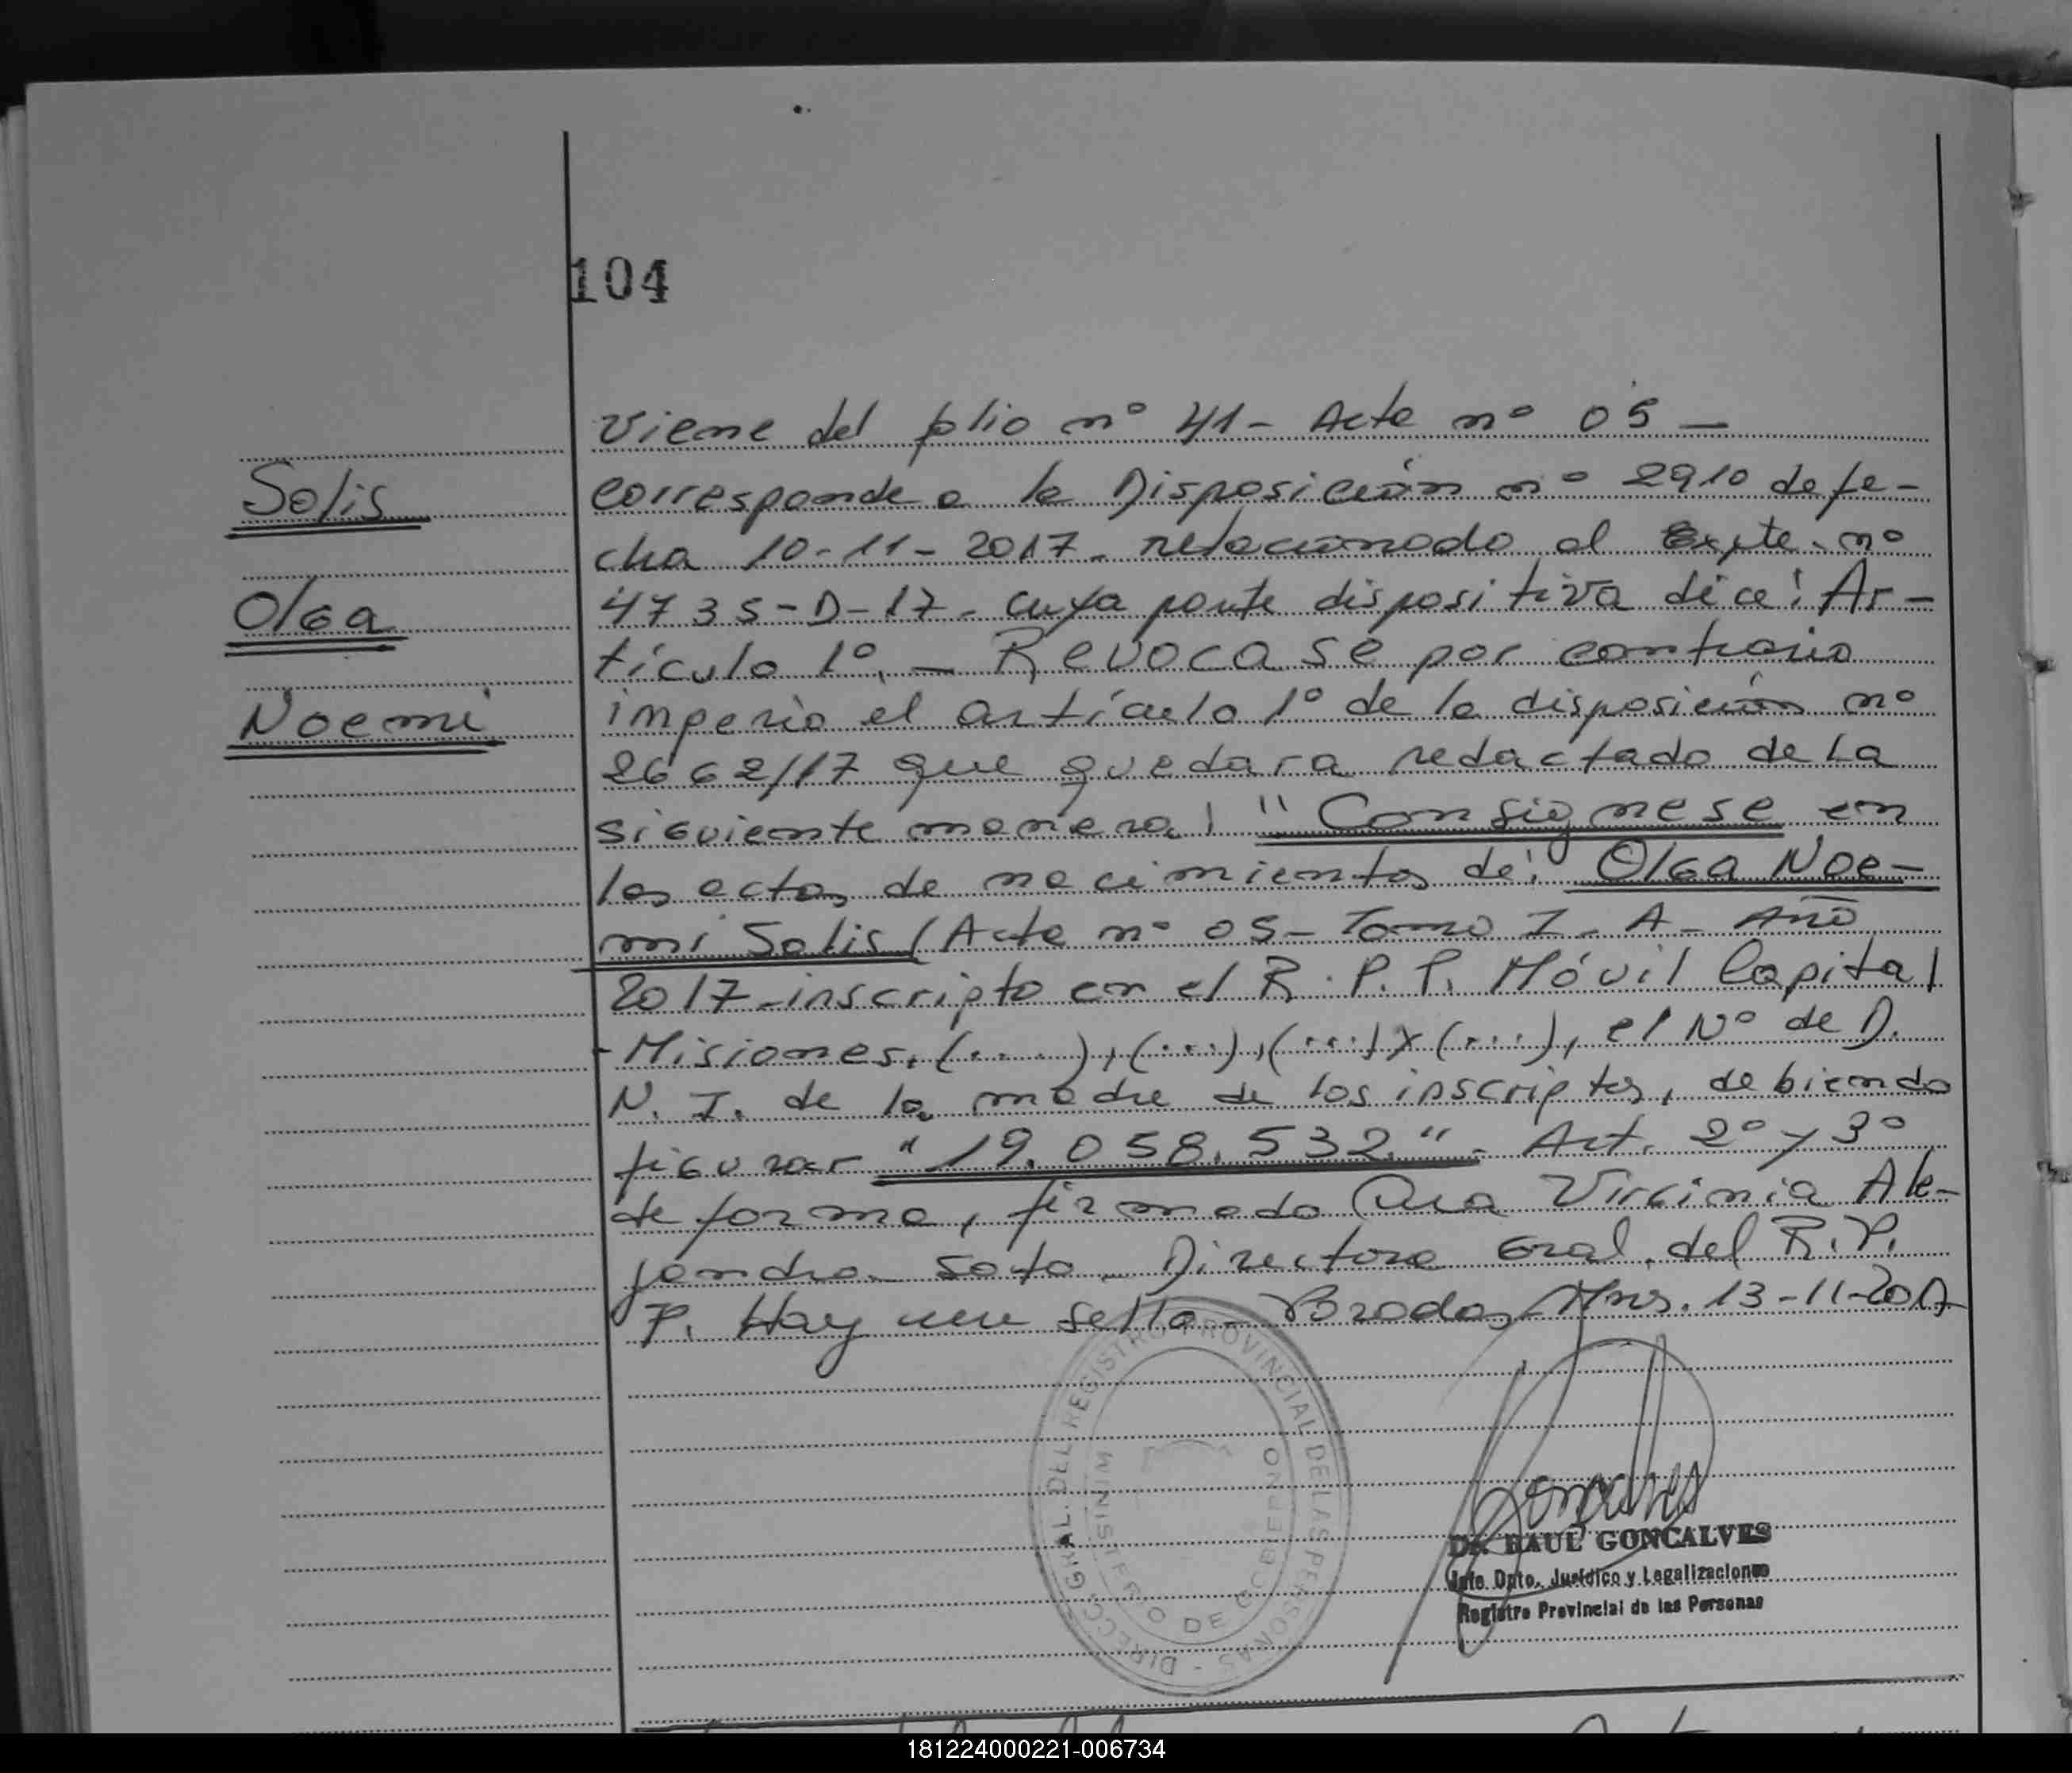 104
Viene del folio nº 41 - Acta nº 05 -
Solis
corresponde a la Disposición nº 2910 de fe-
cha 10-11-2017- relacionado al Expte. nº
Olga
4735-D-17- cuya parte dispositiva dice: Ar-
tículo 1º. - Revocase por contrario
Noemi
imperio el artículo 1º de la disposición nº
2662/17 que quedara redactado de La
siguiente manera: "Consignese en
las actas de nacimientos de: Olga Noe-
mi Solis (Acta nº 05 - Tomo I - A - Año
2017-inscripto en el R.P.P. Móvil Capital
-Misiones, (.....), (....), (....) y (....), el Nº de D.
N. I. de la madre de los inscriptos, debiendo
figurar "19.058.532" - Art. 2º y 3º
de forma, firmado Virginia Ale-
jandra Soto. Directora Gral. del R.P.
P. Hay un sello - Mns. 13-11-2017
DIRECC. GRAL. DEL REGISTRO PROVINCIAL DE LAS PERSONAS -
MINISTERIO DE GOBIERNO
Goncalves
Dr. RAUL GONCALVES
Jefe Dpto. Jurídico y Legalizaciones
Registro Provincial de las Personas
181224000221-006734